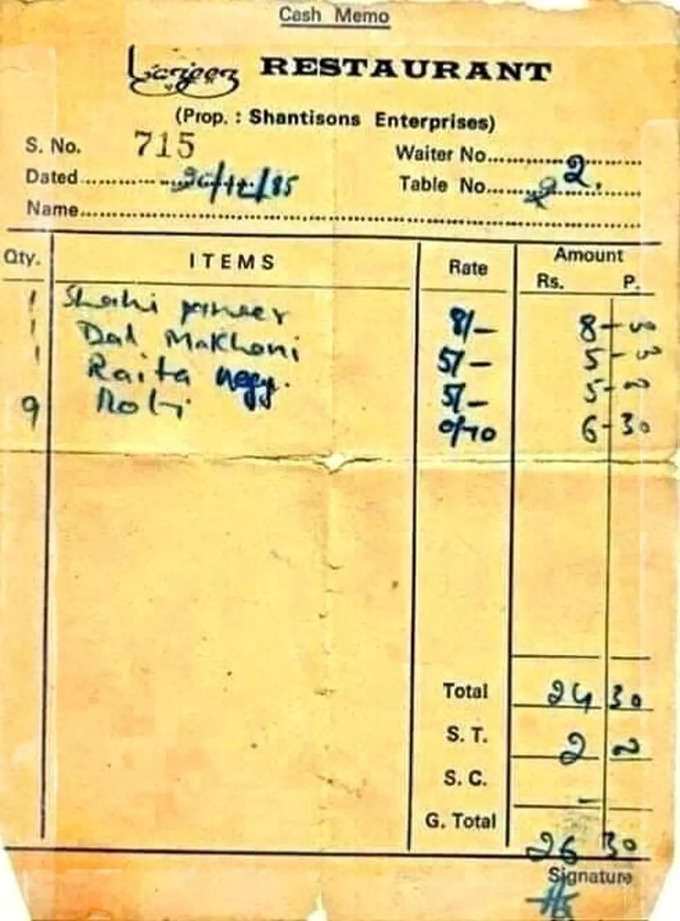 Cash Memo
Lazeez RESTAURANT
(Prop. : Shantisons Enterprises)
S. No. 715 Waiter No. 2.
Dated 20/12/85 Table No. 2
Name
Qty. ITEMS Rate Amount
Rs. P.
1 Shahi paneer 8/- 8-00
1 Dal Makhani 5/- 5-00
1 Raita 5/- 5-00
9 Roti 0/70 6-30
Total 24 30
S. T. 2 00
S. C. -
G. Total 26 30
Signature